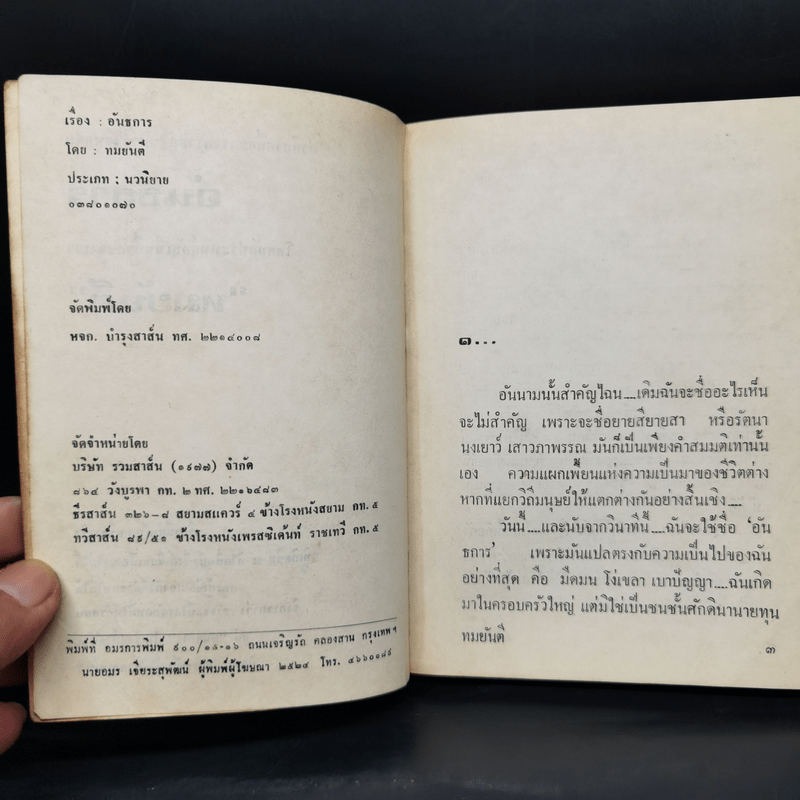 เรื่อง : อันธการ
โดย : ทมยันตี
ประเภท ; นวนิยาย
๐๓๘๐๑๐๗๐
จัดพิมพ์โดย
หจก. บำรุงสาส์น ทศ. ๒๒๑๔๐๐๘
จัดจำหน่ายโดย
บริษัท รวมสาส์น (๑๙๗๗) จำกัด
๘๖๔ วังบูรพา กท. ๒ ทศ. ๒๒๑๖๔๘๓
ธีรสาส์น ๓๒๖-๘ สยามสแควร์ ๔ ข้างโรงหนังสยาม กท. ๕
ทวีสาส์น ๘๙/๕๑ ข้างโรงหนังเพรสซิเด้นท์ ราชเทวี กท. ๕
พิมพ์ที่ อมรการพิมพ์ ๙๐๐/๑๕-๑๖ ถนนเจริญรัถ คลองสาน กรุงเทพ ฯ
นายอมร เจียระสุพัฒน์ ผู้พิมพ์ผู้โฆษณา ๒๕๒๔ โทร. ๔๖๖๐๑๘๙
๑...
อันนามนั้นสำคัญไฉน....เดิมฉันจะชื่ออะไรเห็น
จะไม่สำคัญ เพราะจะชื่อยายสียายสา หรือรัตนา
นงเยาว์ เสาวภาพรรณ มันก็เป็นเพียงคำสมมติเท่านั้น
เอง ความแผกเพี้ยนแห่งความเป็นมาของชีวิตต่าง
หากที่แยกวิถีมนุษย์ให้แตกต่างกันอย่างสิ้นเชิง....
วันนี้....และนับจากวินาทีนี้....ฉันจะใช้ชื่อ ‘อัน
ธการ’ เพราะมันแปลตรงกับความเป็นไปของฉัน
อย่างที่สุด คือ มืดมน โง่เขลา เบาปัญญา....ฉันเกิด
มาในครอบครัวใหญ่ แต่มิใช่เป็นชนชั้นศักดินานายทุน
ทมยันตี
๓